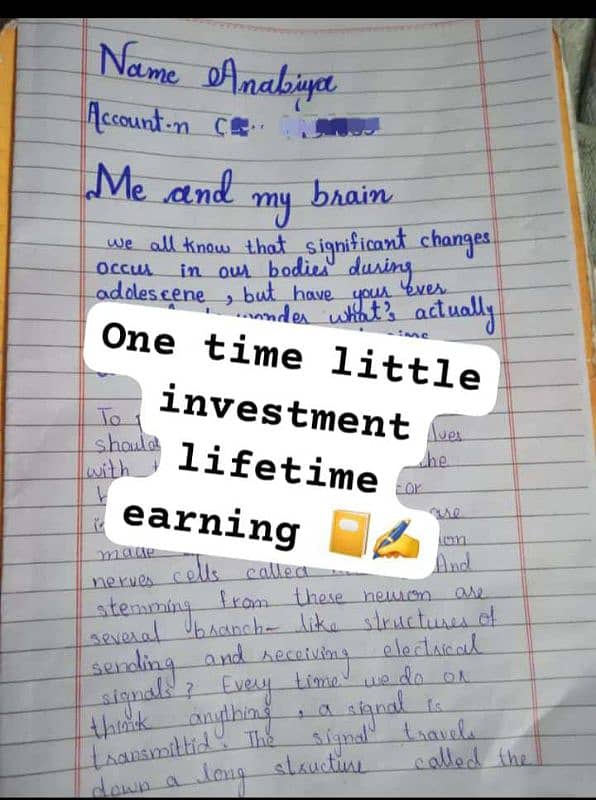 Name Anabiya
Account.n
Me and my brain
we all know that significant changes
occur in our bodies during
adolescene , but have your ever
wonder what's actually
One time little
investment
lifetime
earning
To
should
with
made
nerves cells called And
stemming from these neuron are
several branch- like structures of
sending and receiving electrical
signals ? Every time we do or
think anything , a signal is
transmittid. The signal travels
down a long structure called the